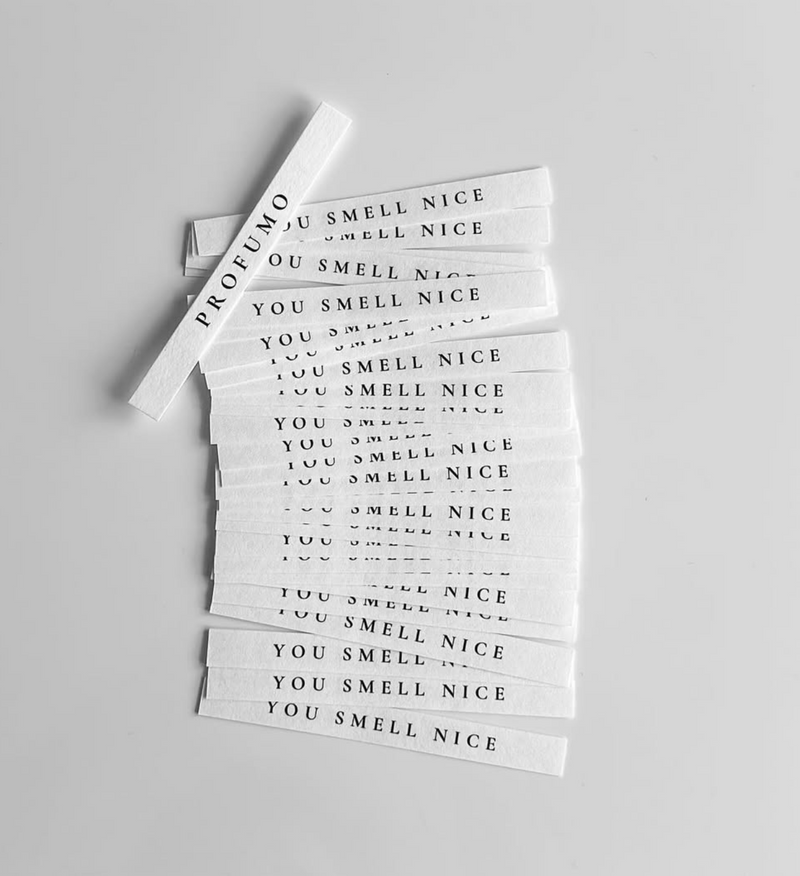 PROFUMO
OU SMELL NICE
SMELL NICE
OU SMELL NICE
YOU SMELL NICE
YOU SMELL NICE
YOU SMELL NICE
YOU SMELL NICE
YOU SMELL
YOU SMELL
YOU SMELL NICE
YOU SMELL NICE
SMELL NICE
YOU SMELL NICE
SMELL NICE
YOU SMELL NICE
YOU SMELL NICE
YOU SMELL
YOU SMELL NICE
YOU SMELL NICE